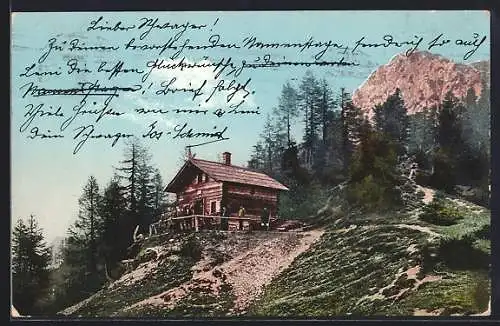 Lieber Schwager!
Zu deinem bevorstehenden Namenstage, sende ich so auch
Leni die besten Glückwünsche zu deinem
Namenstage! Brief folgt.
Viele Grüße von mir u. dein
dein Schwager Jos. Schmid